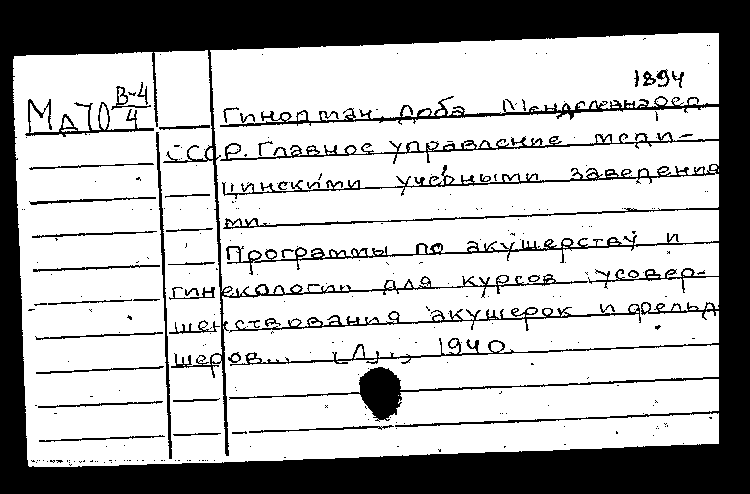 1894
Мд70 В-4/4
Гинодман, Доба Менделевна ред.
СССР. Главное управление меди-
цинскими учебными заведения
ми.
Программы по акушерству и
гинекологии для курсов усовер-
шенствования акушерок и фельд
шеров... [Л.], 1940.